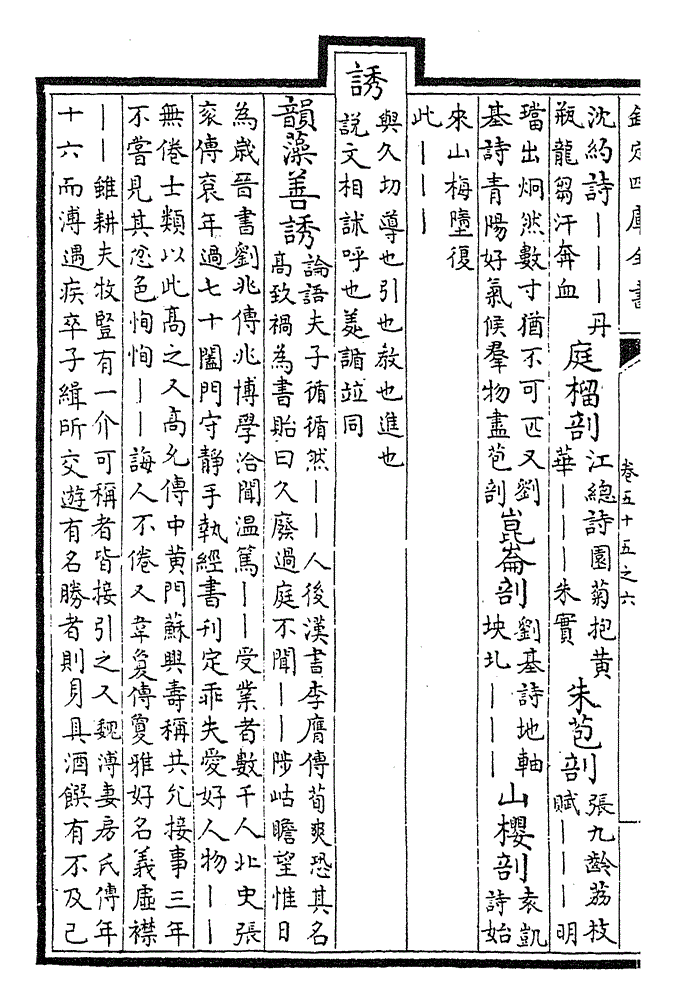 欽定四庫全書 卷五十五之六
沈約詩丨丨丨丹
瓶龍芻汗奔血
庭榴剖
江總詩園菊抱黄
華丨丨丨朱實
朱苞剖
張九齡荔枝
賦丨丨丨明
璫出炯然數寸猶不可匹又劉
基詩青陽好氣候羣物盡苞剖
崑崙剖
劉基詩地軸
坱圠丨丨丨
山櫻剖
袁凱
詩始
來山梅墮復
此丨丨丨
誘
與久切導也引也教也進也
説文相訹呼也羑䛻竝同
韻藻善誘
論語夫子循循然丨丨人後漢書李膺傳荀爽恐其名
髙致禍為書貽曰久廢過庭不聞丨丨陟岵瞻望惟日
為歲晉書劉兆傳兆博學洽聞温篤丨丨受業者數千人北史張
衮傳衮年過七十闔門守静手執經書刊定乖失愛好人物丨丨
無倦士類以此髙之又髙允傳中黄門蘇興壽稱共允接事三年
不嘗見其忿色恂恂丨丨誨人不倦又韋敻傳敻雅好名義虛襟
丨丨雖耕夫牧豎有一介可稱者皆接引之又魏溥妻房氏傳年
十六而溥遇疾卒子緝所交遊有名勝者則身具酒饌有不及己